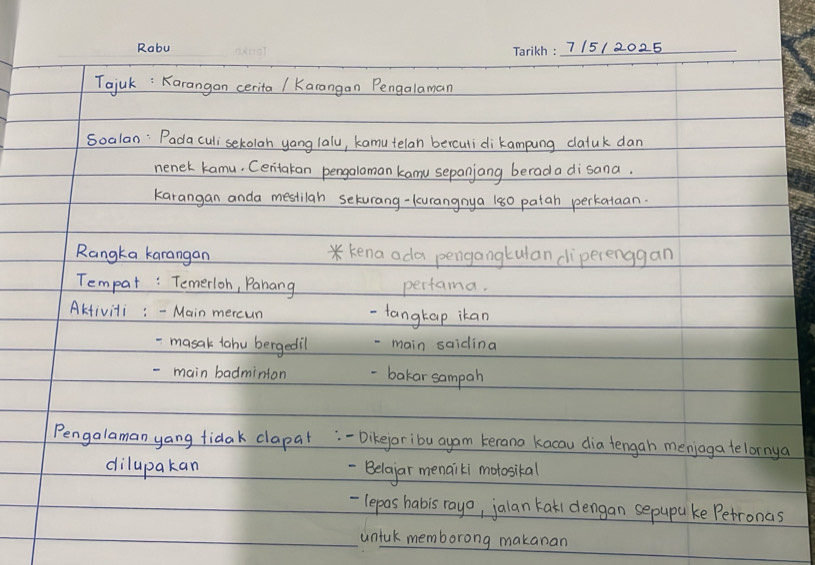 Rabu
Tarikh : 7/5/2025
Tajuk : Karangan cerita / Karangan Pengalaman
Soalan : Pada cuti sekolah yang lalu, kamu telah bercuti di kampung datuk dan
nenek kamu. Ceritakan pengalaman kamu sepanjang berada di sana.
Karangan anda mestilah sekurang-kurangnya 180 patah perkataan.
Rangka karangan * kena ada pengangkutan di perenggan
Tempat : Temerloh, Pahang pertama.
Aktiviti : - Main mercun - tangkap ikan
- masak tahu bergedil - main saidina
- main badminton - bakar sampah
Pengalaman yang tidak dapat :- Dikejar ibu ayam kerana kacau dia tengah menjaga telornya
dilupakan - Belajar menaiki motosikal
- lepas habis raya, jalan kaki dengan sepupu ke Petronas
untuk memborong makanan